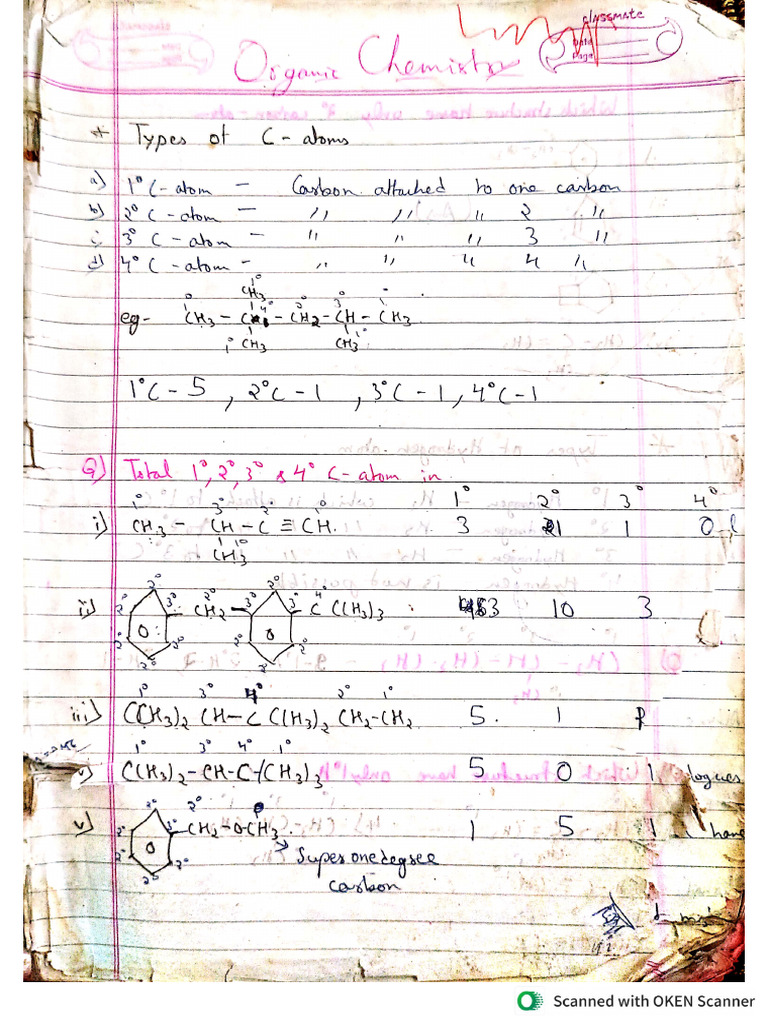 classmate
Date
Page
Organic Chemistry
* Types of C-atoms
a) 1° C-atom - Carbon attached to one carbon
b) 2° C-atom - " " " 2 "
c) 3° C-atom - " " " 3 "
d) 4° C-atom - " " " 4 "
1° CH3
eg- CH3 - C - CH2 - CH - CH3
1° CH3 CH3
1°C-5, 2°C-1, 3°C-1, 4°C-1
Q) Total 1°, 2°, 3° & 4° C-atom in 1° 2° 3° 4°
1° 3° 2° 1°
i) CH3 - CH - C ≡ CH. 3 1 1 0
CH3
ii) CH2 C(CH3)3 3 10 3
1° 3° 4° 2° 1°
iii) C(CH3)2 CH-C C(CH3)2 CH2-CH2 5. 1
1° 3° 4° 1°
C(CH3)2-CH-C-(CH3)3 5 0 1 logues
v) CH2-OCH3. 1 5 1
→ Super one degree
carbon
Scanned with OKEN Scanner